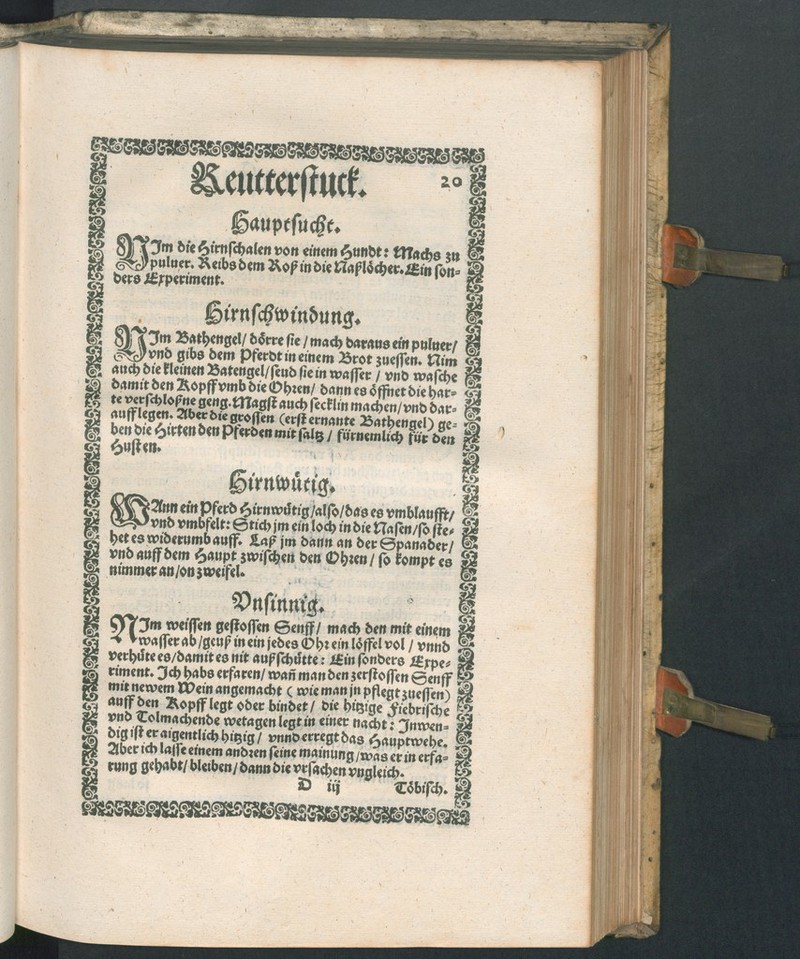 Reutterstuck. 20
Hauptsucht.
NIm die Hirnschalen von einem Hundt: Machs zu
puluer. Reibs dem Roß in die Naßlöcher. Ein son-
ders Experiment.
Hirnschwindung.
NIm Bathengel/ dörre sie / mach daraus ein puluer/
vnd gibs dem Pferdt in einem Brot zuessen. Nim
auch die kleinen Batengel/seud sie in wasser / vnd wasche
damit den Kopff vmb die Ohren/ dann es öffnet die har-
te verschloßne geng. Magst auch secklin machen/vnd dar-
auff legen. Aber die grossen (erst ernante Bathengel) ge-
ben die Hirten den Pferden mit saltz / fürnemlich für den
Husten.
Hirnwütig.
WAnn ein Pferd Hirnwütig/also/das es vmblaufft/
vnd vmbfelt: Stich jm ein loch in die Nasen/so ste-
het es widerumb auff. Laß jm dann an der Spanader/
vnd auff dem Haupt zwischen den Ohren / so kompt es
nimmer an/on zweifel.
Vnsinnig.
NIm weissen gestossen Senff/ mach den mit einem
wasser ab/geuß in ein jedes Ohr ein löffel vol / vnnd
verhüte es/damit es nit außschütte: Ein sonders Expe-
riment. Ich habs erfaren/ wañ man den zerstossen Senff
mit newem Wein angemacht ( wie man jn pflegt zuessen)
auff den Kopff legt oder bindet/ die hitzige Fiebrische
vnd Tolmachende wetagen legt in einer nacht: Inwen-
dig ist er aigentlich hitzig/ vnnd erregt das Hauptwehe.
Aber ich lasse einem andren seine mainung/was er in erfa-
rung gehabt/ bleiben/dann die vrsachen vngleich.
D iij Töbisch.